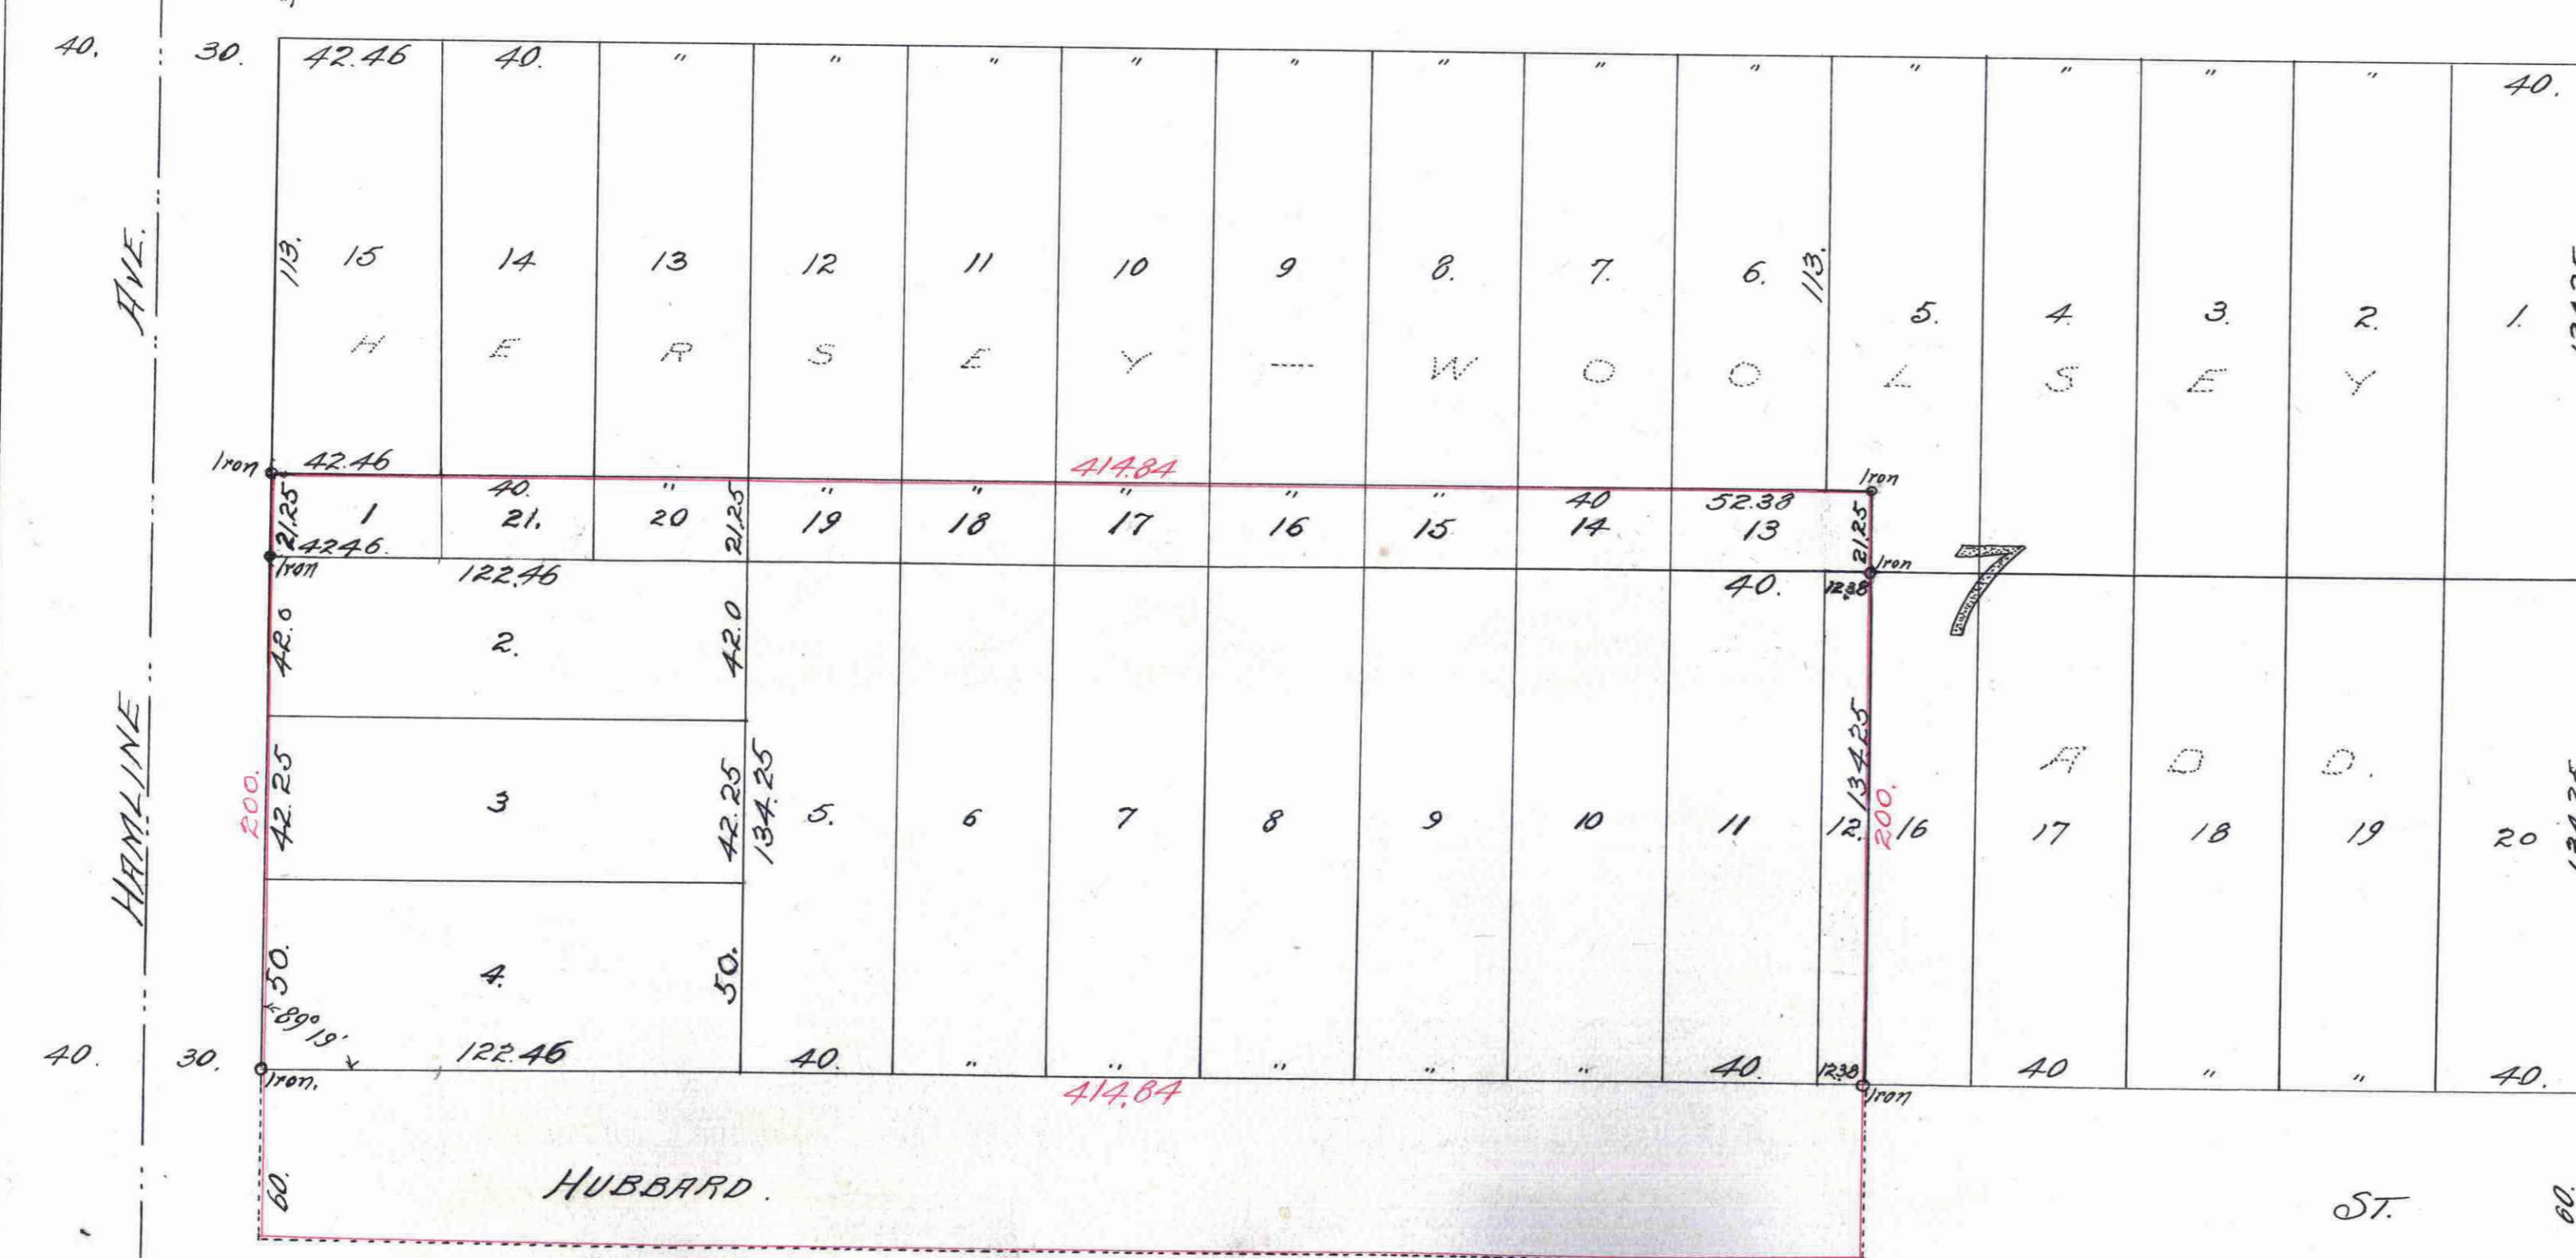 40. 30. 42.46 40. " " " " " " " " " " " " 40.
AVE.
113. 15 14 13 12 11 10 9 8. 7. 6. 113. 5. 4. 3. 2. 1.
HERSEY — WOOLSEY
Iron 42.46 414.84 Iron
40. " " " " " " 40 52.38
21.25 1 21. 20 21.25 19 18 17 16 15 14 13 21.25
42.46
Iron 122.46 40. 12.38 Iron 7
42.0 2. 42.0
HAMLINE
200. 42.25 3 42.25 134.25 5. 6 7 8 9 10 11 12. 134.25 200. 16 17 18 19 20 134.25
ADD.
50. 4. 50.
89° 19'
40. 30. 122.46 40. " " " " " 40. 12.38 40 " " 40.
Iron. 414.84 Iron
60. HUBBARD. ST. 60.